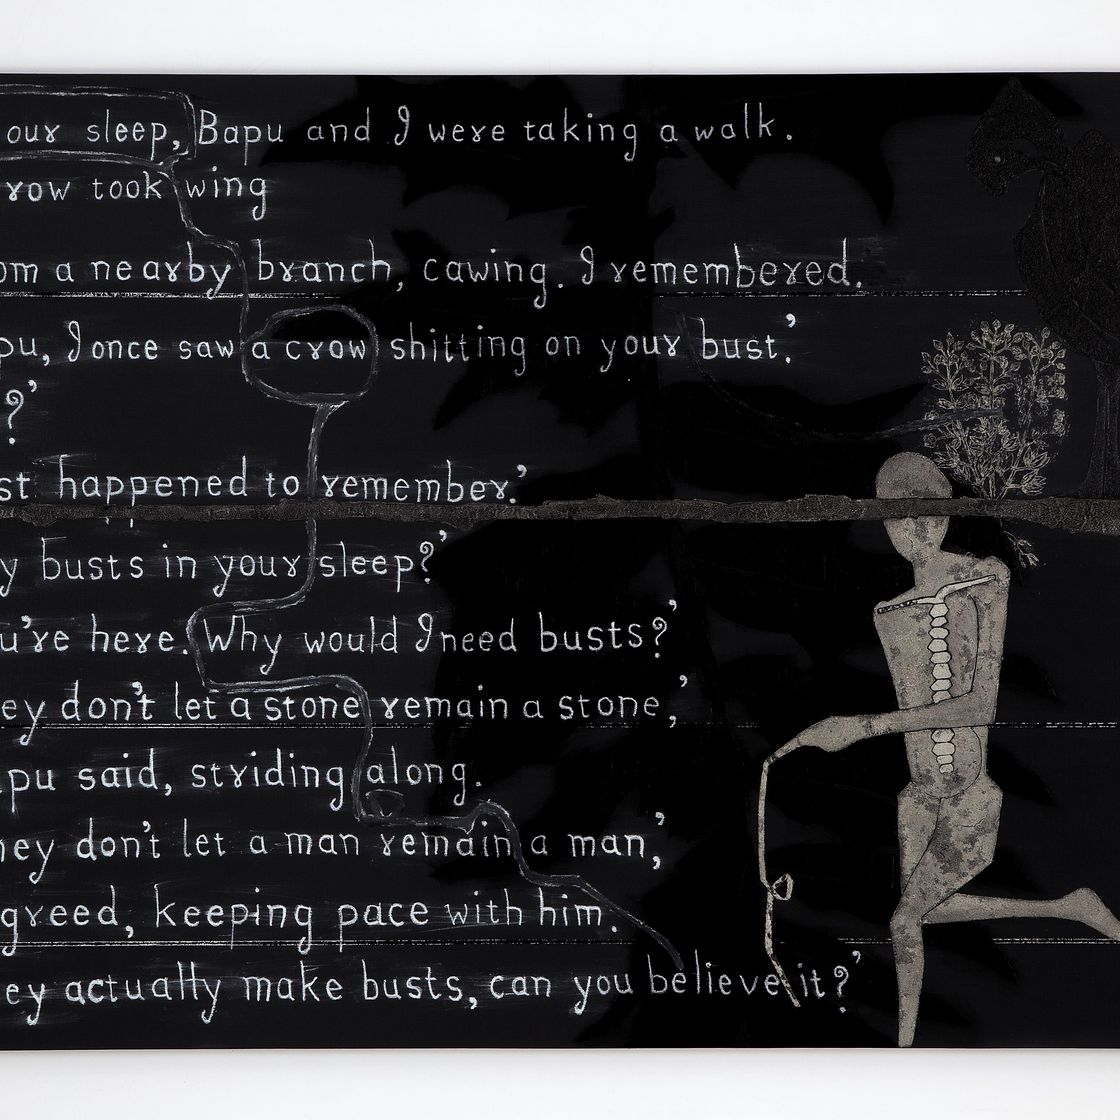 our sleep, Bapu and I were taking a walk.
row took wing
om a nearby branch, cawing. I remembered.
pu, I once saw a crow shitting on your bust.’
?’
st happened to remember.’
y busts in your sleep?’
u’re here. Why would I need busts?’
ey don’t let a stone remain a stone,’
pu said, striding along.
ey don’t let a man remain a man,’
greed, keeping pace with him.
ey actually make busts, can you believe it?’